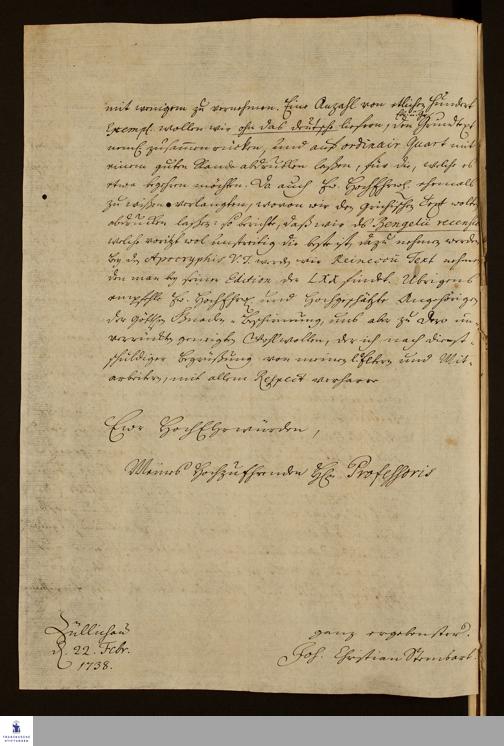 mit wenigem zu vernehmen. Eine Anzahl von etlichen hundert
Exempl. wollen wir ohn das deutsche liefern, den Grundtext
zusammen rücken, und auf ordinair Quart mit
einem guten Rande abdrucken laßen, für die, welche es
etwa begehren möchten. Da auch Ew. HochEhrw. ehemals
zu wißen verlangten, wovon wir den Griechischen Text wolten
abdrucken laßen: so berichte, daß wir des Bengelii recension
welche vorizt wol unstreitig die beste ist, dazu nehmen werden
bey den Apocryphis V. T. werden wir Reineccii Text nehmen
den man bey seiner Edition der LXX findet. Übrigens
empfehle Ew. HochEhrw. und Hochgeschätzte Angehörigen
der Göttlichen Gnaden-Beschirmung, uns aber zu Dero un-
verrückt geneigten Wohlwollen, der ich nach dienst-
schuldiger Begrüßung von meinen Eltern und Mit-
arbeitern, mit allem Respect verharre
Ewr HochEhrwürden,
Meines Hochzuehrenden Hn. Professoris
Züllichau
d. 22. Febr.
1738.
ganz ergebenster
Joh. Christian Steinbart.
FRANCKESCHE
STIFTUNGEN